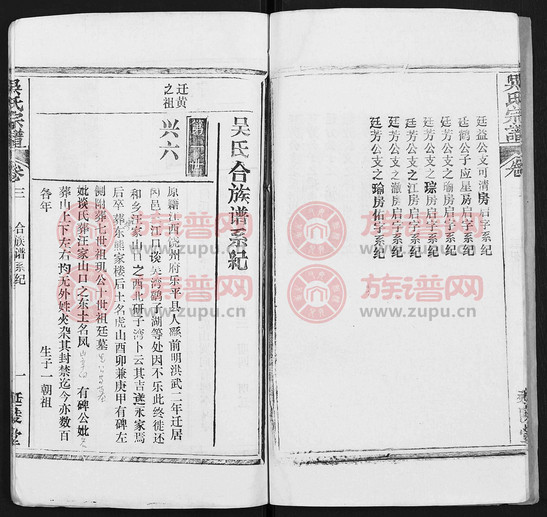 吴氏宗譜
卷
廷益公支可清房启字系纪
廷鹤公子应星房启字系纪
廷芳公支之瑜房启字系纪
廷芳公支之琮房启字系纪
廷芳公支之江房启字系纪
廷芳公支之瀛房启字系纪
廷芳公支之瑜房佑字系纪
吴氏合族谱系紀
迁黄
之祖
兴六
原籍江西饶州府乐平县人縣前明洪武二年迁居
邑江吕谈吴湾鹞子湖等处因不乐此终徙还
和乡汪家山口之西北研子湾卜云其吉遂家焉
后卒葬东熊家楼后土名虎山酉卯兼庚甲有碑左
侧附葬七世祖玑公十世祖廷墓
妣谈氏葬汪家山口之东土名凤 有碑公妣
葬山上下左右均无外姓夹杂其封禁迄今亦数百
各年
生子一朝祖
吳氏宗譜
卷三
合族谱系紀
一
延陵堂
族谱网
www.zupu.cn
族谱网
www.zupu.cn